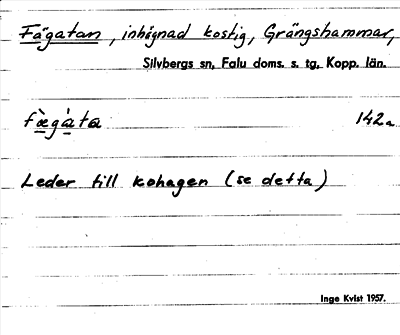 Fägatan, inhägnad kostig, Grängshammar,
Silvbergs sn, Falu doms. s. tg, Kopp. län.
fæ̀gàta 142a
Leder till kohagen (se detta)
Inge Kvist 1957.